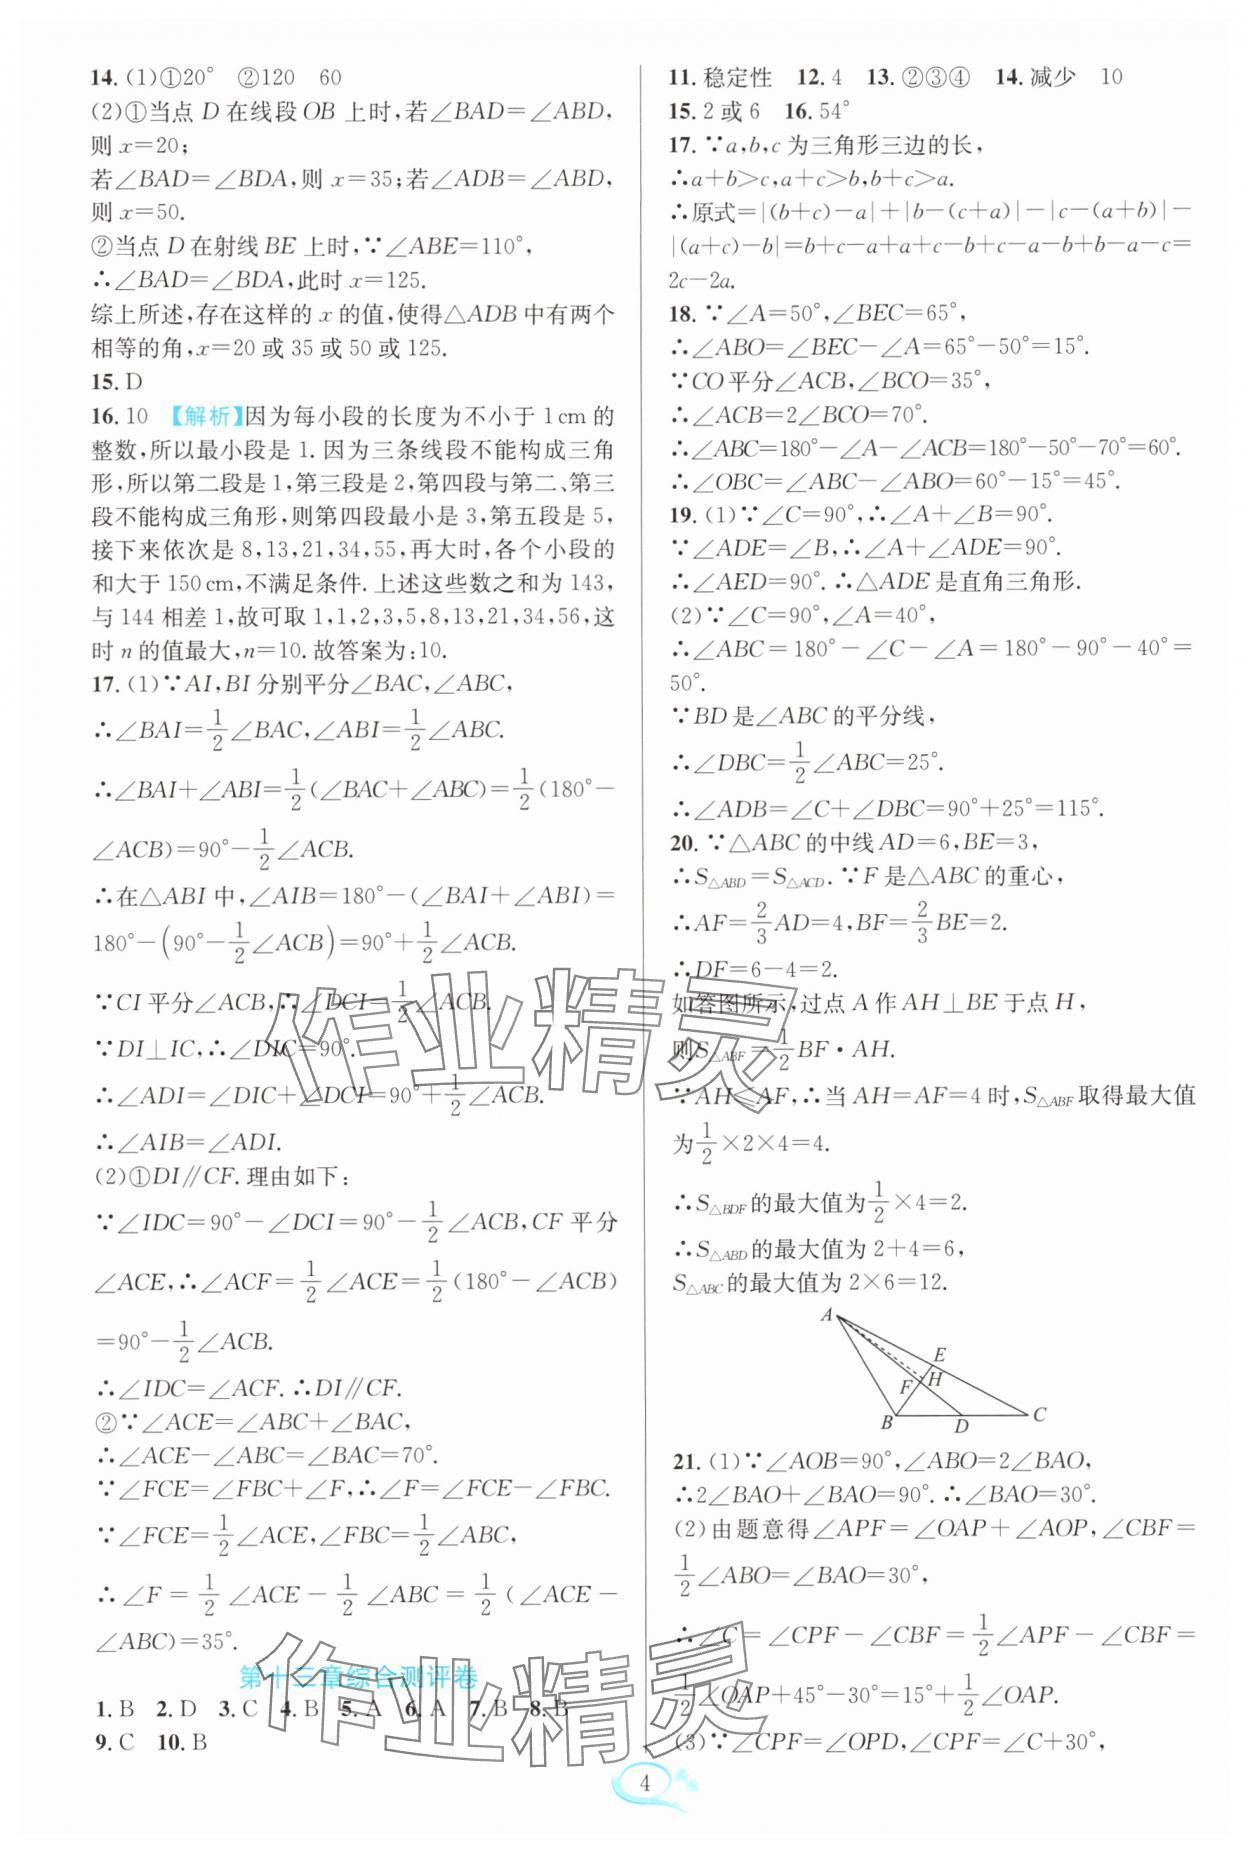 14. (1)①20°　②120　60
(2)①当点 D 在线段 OB 上时,若∠BAD=∠ABD,
则 x=20;
若∠BAD=∠BDA,则 x=35;若∠ADB=∠ABD,
则 x=50.
②当点 D 在射线 BE 上时,∵∠ABE=110°,
∴∠BAD=∠BDA,此时 x=125.
综上所述,存在这样的 x 的值,使得△ADB 中有两个
相等的角,x=20 或 35 或 50 或 125.
15. D
16. 10　【解析】因为每小段的长度为不小于 1 cm 的
整数,所以最小段是 1. 因为三条线段不能构成三角
形,所以第二段是 1,第三段是 2,第四段与第二、第三
段不能构成三角形,则第四段最小是 3,第五段是 5,
接下来依次是 8,13,21,34,55,再大时,各个小段的
和大于 150 cm,不满足条件. 上述这些数之和为 143,
与 144 相差 1,故可取 1,1,2,3,5,8,13,21,34,56,这
时 n 的值最大,n=10. 故答案为:10.
17. (1)∵AI,BI 分别平分∠BAC,∠ABC,
∴∠BAI=1/2∠BAC,∠ABI=1/2∠ABC.
∴∠BAI+∠ABI=1/2(∠BAC+∠ABC)=1/2(180°−
∠ACB)=90°−1/2∠ACB.
∴在△ABI 中,∠AIB=180°−(∠BAI+∠ABI)=
180°−(90°−1/2∠ACB)=90°+1/2∠ACB.
∵CI 平分∠ACB,∴∠DCI=1/2∠ACB.
∵DI⊥IC,∴∠DIC=90°.
∴∠ADI=∠DIC+∠DCI=90°+1/2∠ACB.
∴∠AIB=∠ADI.
(2)①DI∥CF. 理由如下:
∵∠IDC=90°−∠DCI=90°−1/2∠ACB,CF 平分
∠ACE,∴∠ACF=1/2∠ACE=1/2(180°−∠ACB)
=90°−1/2∠ACB.
∴∠IDC=∠ACF. ∴DI∥CF.
②∵∠ACE=∠ABC+∠BAC,
∴∠ACE−∠ABC=∠BAC=70°.
∵∠FCE=∠FBC+∠F,∴∠F=∠FCE−∠FBC.
∵∠FCE=1/2∠ACE,∠FBC=1/2∠ABC,
∴∠F=1/2∠ACE−1/2∠ABC=1/2(∠ACE−
∠ABC)=35°.
第十三章综合测评卷
1. B　2. D　3. C　4. B　5. A　6. A　7. B　8. B
9. C　10. B
11. 稳定性　12. 4　13. ②③④　14. 减少　10
15. 2 或 6　16. 54°
17. ∵a,b,c 为三角形三边的长,
∴a+b>c,a+c>b,b+c>a.
∴原式=|(b+c)−a|+|b−(c+a)|−|c−(a+b)|−
|(a+c)−b|=b+c−a+a+c−b+c−a−b+b−a−c=
2c−2a.
18. ∵∠A=50°,∠BEC=65°,
∴∠ABO=∠BEC−∠A=65°−50°=15°.
∵CO 平分∠ACB,∠BCO=35°,
∴∠ACB=2∠BCO=70°.
∴∠ABC=180°−∠A−∠ACB=180°−50°−70°=60°.
∴∠OBC=∠ABC−∠ABO=60°−15°=45°.
19. (1)∵∠C=90°,∴∠A+∠B=90°.
∵∠ADE=∠B,∴∠A+∠ADE=90°.
∴∠AED=90°. ∴△ADE 是直角三角形.
(2)∵∠C=90°,∠A=40°,
∴∠ABC=180°−∠C−∠A=180°−90°−40°=
50°.
∵BD 是∠ABC 的平分线,
∴∠DBC=1/2∠ABC=25°.
∴∠ADB=∠C+∠DBC=90°+25°=115°.
20. ∵△ABC 的中线 AD=6,BE=3,
∴S△ABD=S△ACD. ∵F 是△ABC 的重心,
∴AF=2/3AD=4,BF=2/3BE=2.
∴DF=6−4=2.
如答图所示,过点 A 作 AH⊥BE 于点 H,
则 S△ABF=1/2BF·AH.
∵AH≤AF,∴当 AH=AF=4 时,S△ABF 取得最大值
为1/2×2×4=4.
∴S△BDF 的最大值为1/2×4=2.
∴S△ABD 的最大值为 2+4=6,
S△ABC 的最大值为 2×6=12.
A
E
F H
B D C
21. (1)∵∠AOB=90°,∠ABO=2∠BAO,
∴2∠BAO+∠BAO=90°. ∴∠BAO=30°.
(2)由题意得∠APF=∠OAP+∠AOP,∠CBF=
1/2∠ABO=∠BAO=30°,
∴∠C=∠CPF−∠CBF=1/2∠APF−∠CBF=
1/2∠OAP+45°−30°=15°+1/2∠OAP.
(3)∵∠CPF=∠OPD,∠CPF=∠C+30°,
4
作业精灵
作业精灵